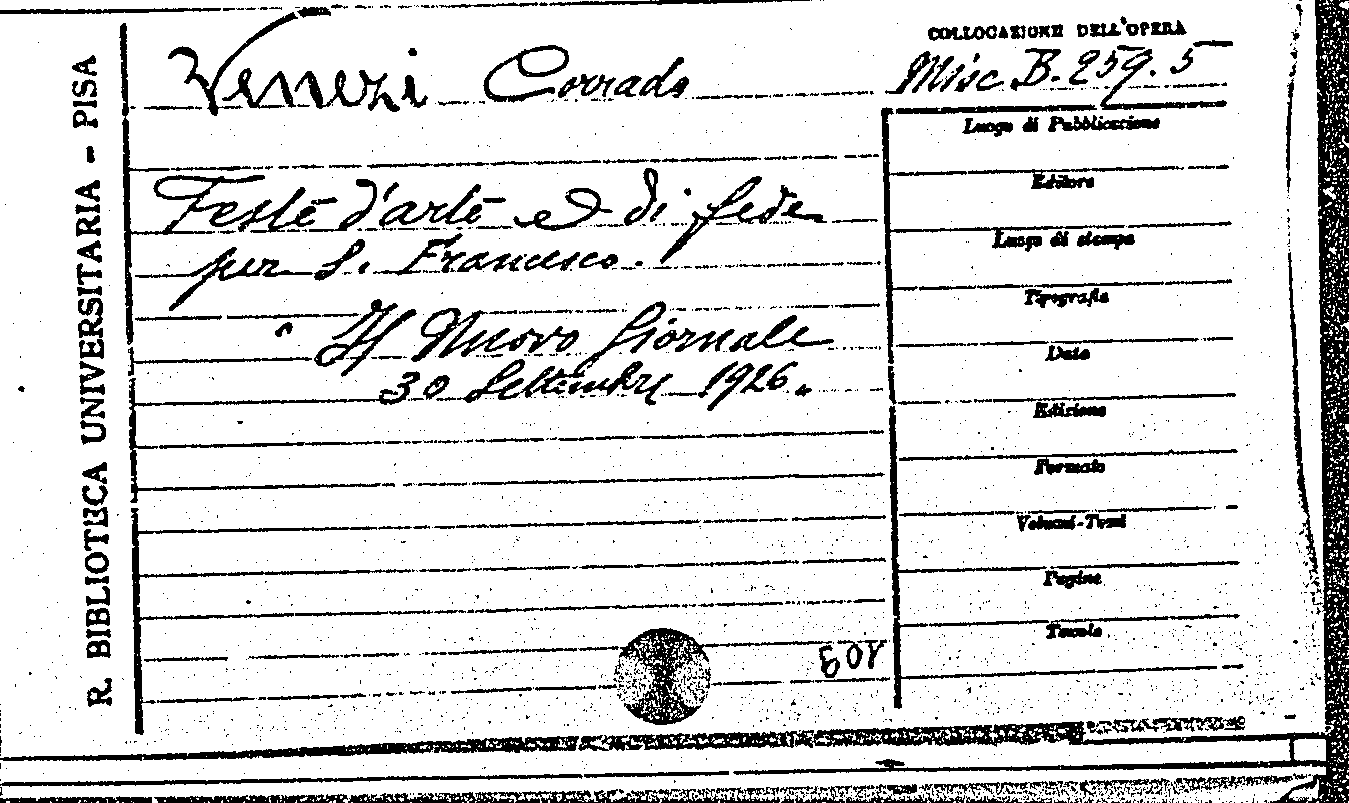 R. BIBLIOTECA UNIVERSITARIA - PISA
Venezi Corrado
COLLOCAZIONE DELL'OPERA
Misc. B. 259. 5
Feste d'arte e di fede
per S. Francesco.
" Il Nuovo Giornale
30 Settembre 1926 "
Luogo di Pubblicazione
Editore
Luogo di stampa
Tipografia
Data
Edizione
Formato
Volumi-Tomi
Pagine
Tavole